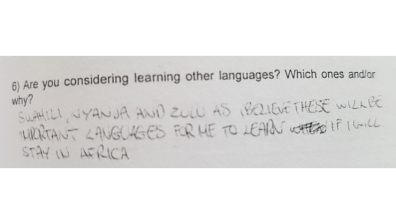 6) Are you considering learning other languages? Which ones and/or
why?
SWAHILI, NYANJA AND ZULU AS I BELIEVE THESE WILL BE
IMPORTANT LANGUAGES FOR ME TO LEARN IF I WILL
STAY IN AFRICA